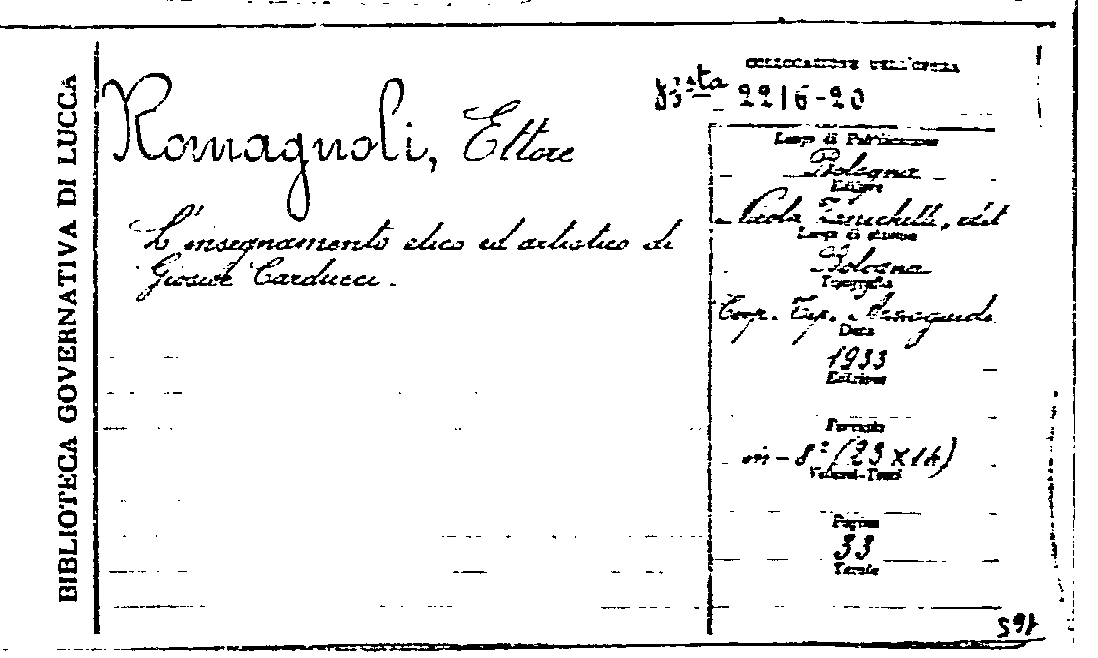 BIBLIOTECA GOVERNATIVA DI LUCCA
COLLOCAZIONE DELL'OPERA
2216-20
Romagnoli, Ettore
L'insegnamento etico ed artistico di
Giosuè Carducci.
Luogo di Pubblicazione
Bologna
Editore
Zanichelli, edit
Luogo di stampa
Bologna
Tipografia
Coop. Tip. Azzoguidi
Data
1933
Edizione
Formato
in-8° (23 x 16)
Volumi-Tomi
Pagine
33
Tavole